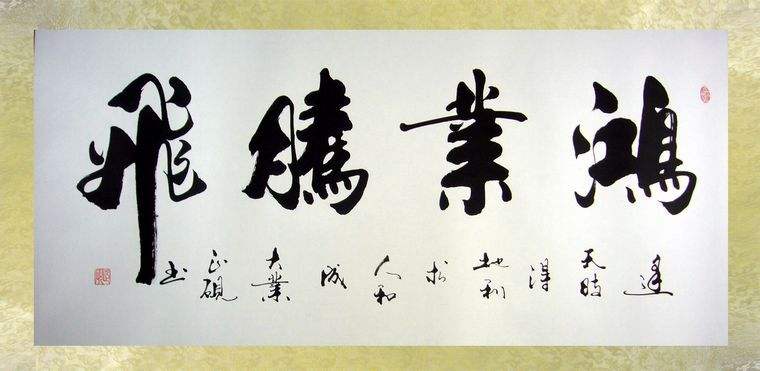 鴻業騰飛
逢天時得地利人和成大業硯书